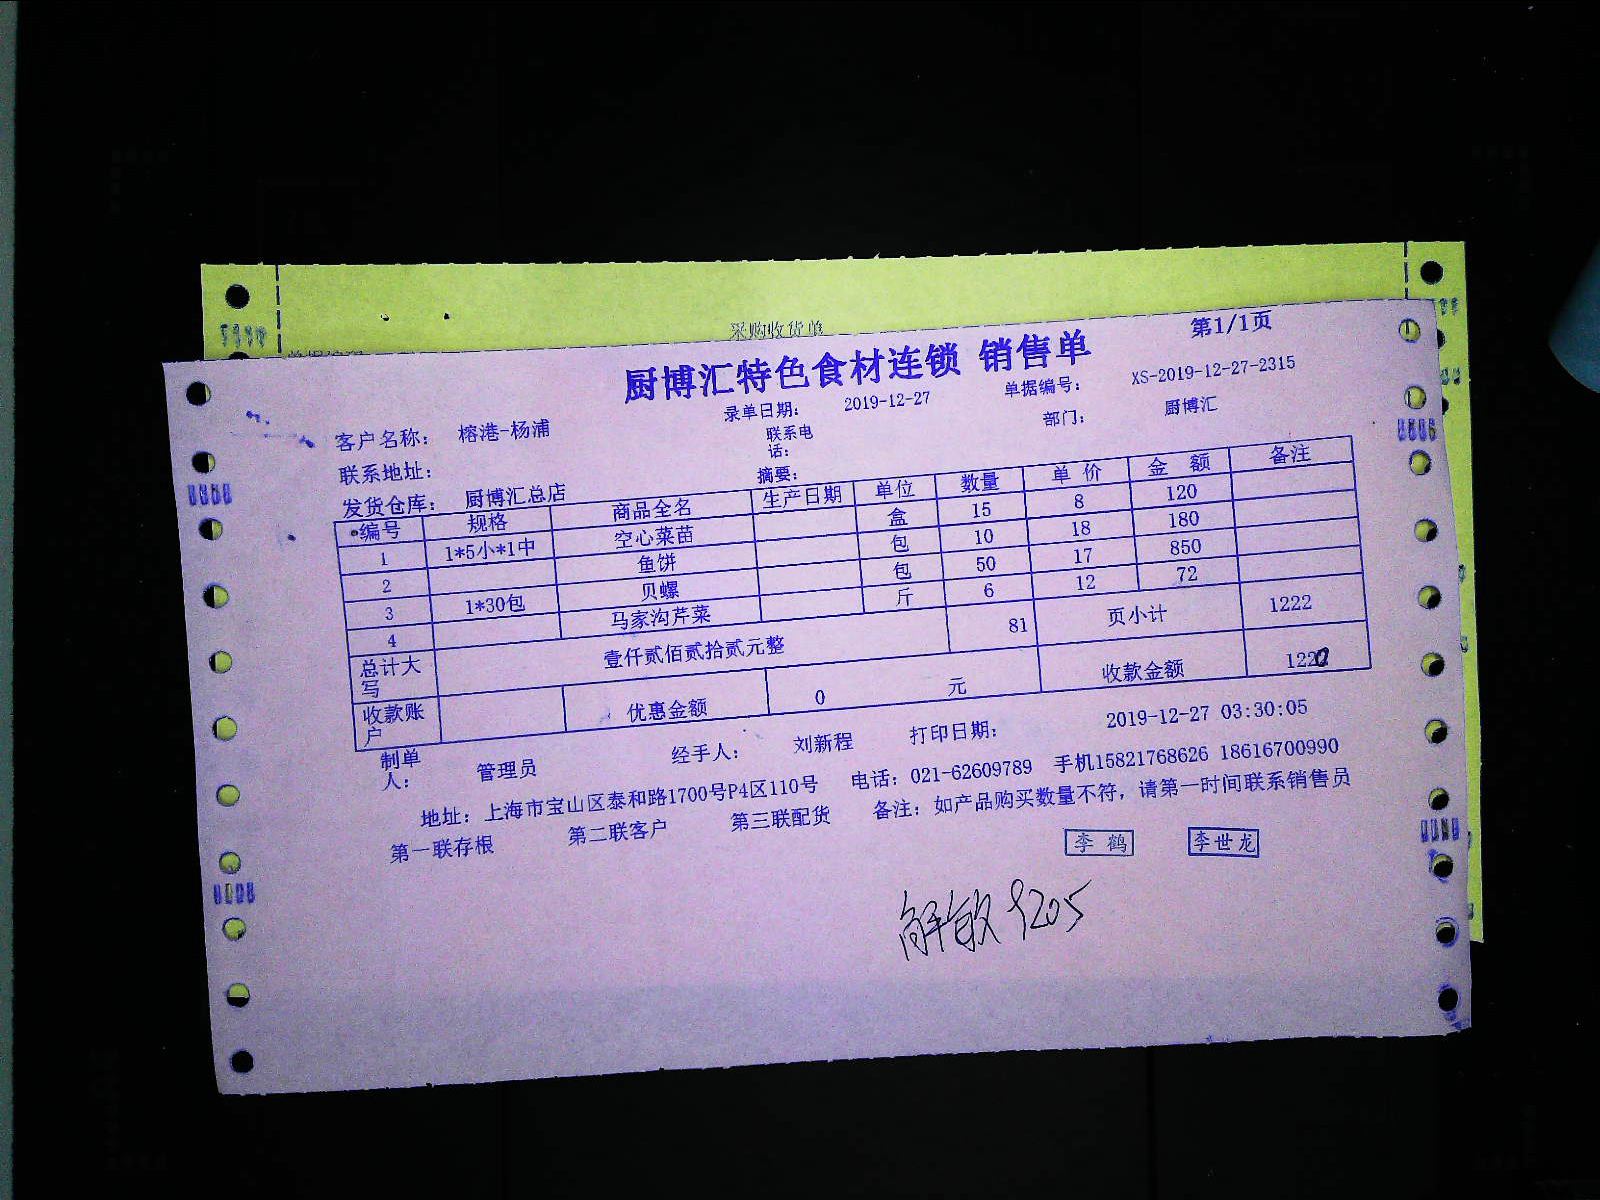 采购收货单
厨博汇特色食材连锁 销售单 第1/1页
录单日期： 2019-12-27 单据编号： XS-2019-12-27-2315
客户名称： 榕港-杨浦 联系电话： 部门： 厨博汇
联系地址：
发货仓库： 厨博汇总店 摘要：
编号 规格 商品全名 生产日期 单位 数量 单 价 金 额 备注
1 1*5小*1中 空心菜苗 盒 15 8 120
2 鱼饼 包 10 18 180
3 1*30包 贝螺 包 50 17 850
4 马家沟芹菜 斤 6 12 72
总计大写 壹仟贰佰贰拾贰元整 81 页小计 1222
收款账户 优惠金额 0 元 收款金额 1220
制单人： 管理员 经手人： 刘新程 打印日期： 2019-12-27 03:30:05
地址：上海市宝山区泰和路1700号P4区110号 电话：021-62609789 手机15821768626 18616700990
第一联存根 第二联客户 第三联配货 备注：如产品购买数量不符，请第一时间联系销售员
李 鹤 李世龙
解敏 1205